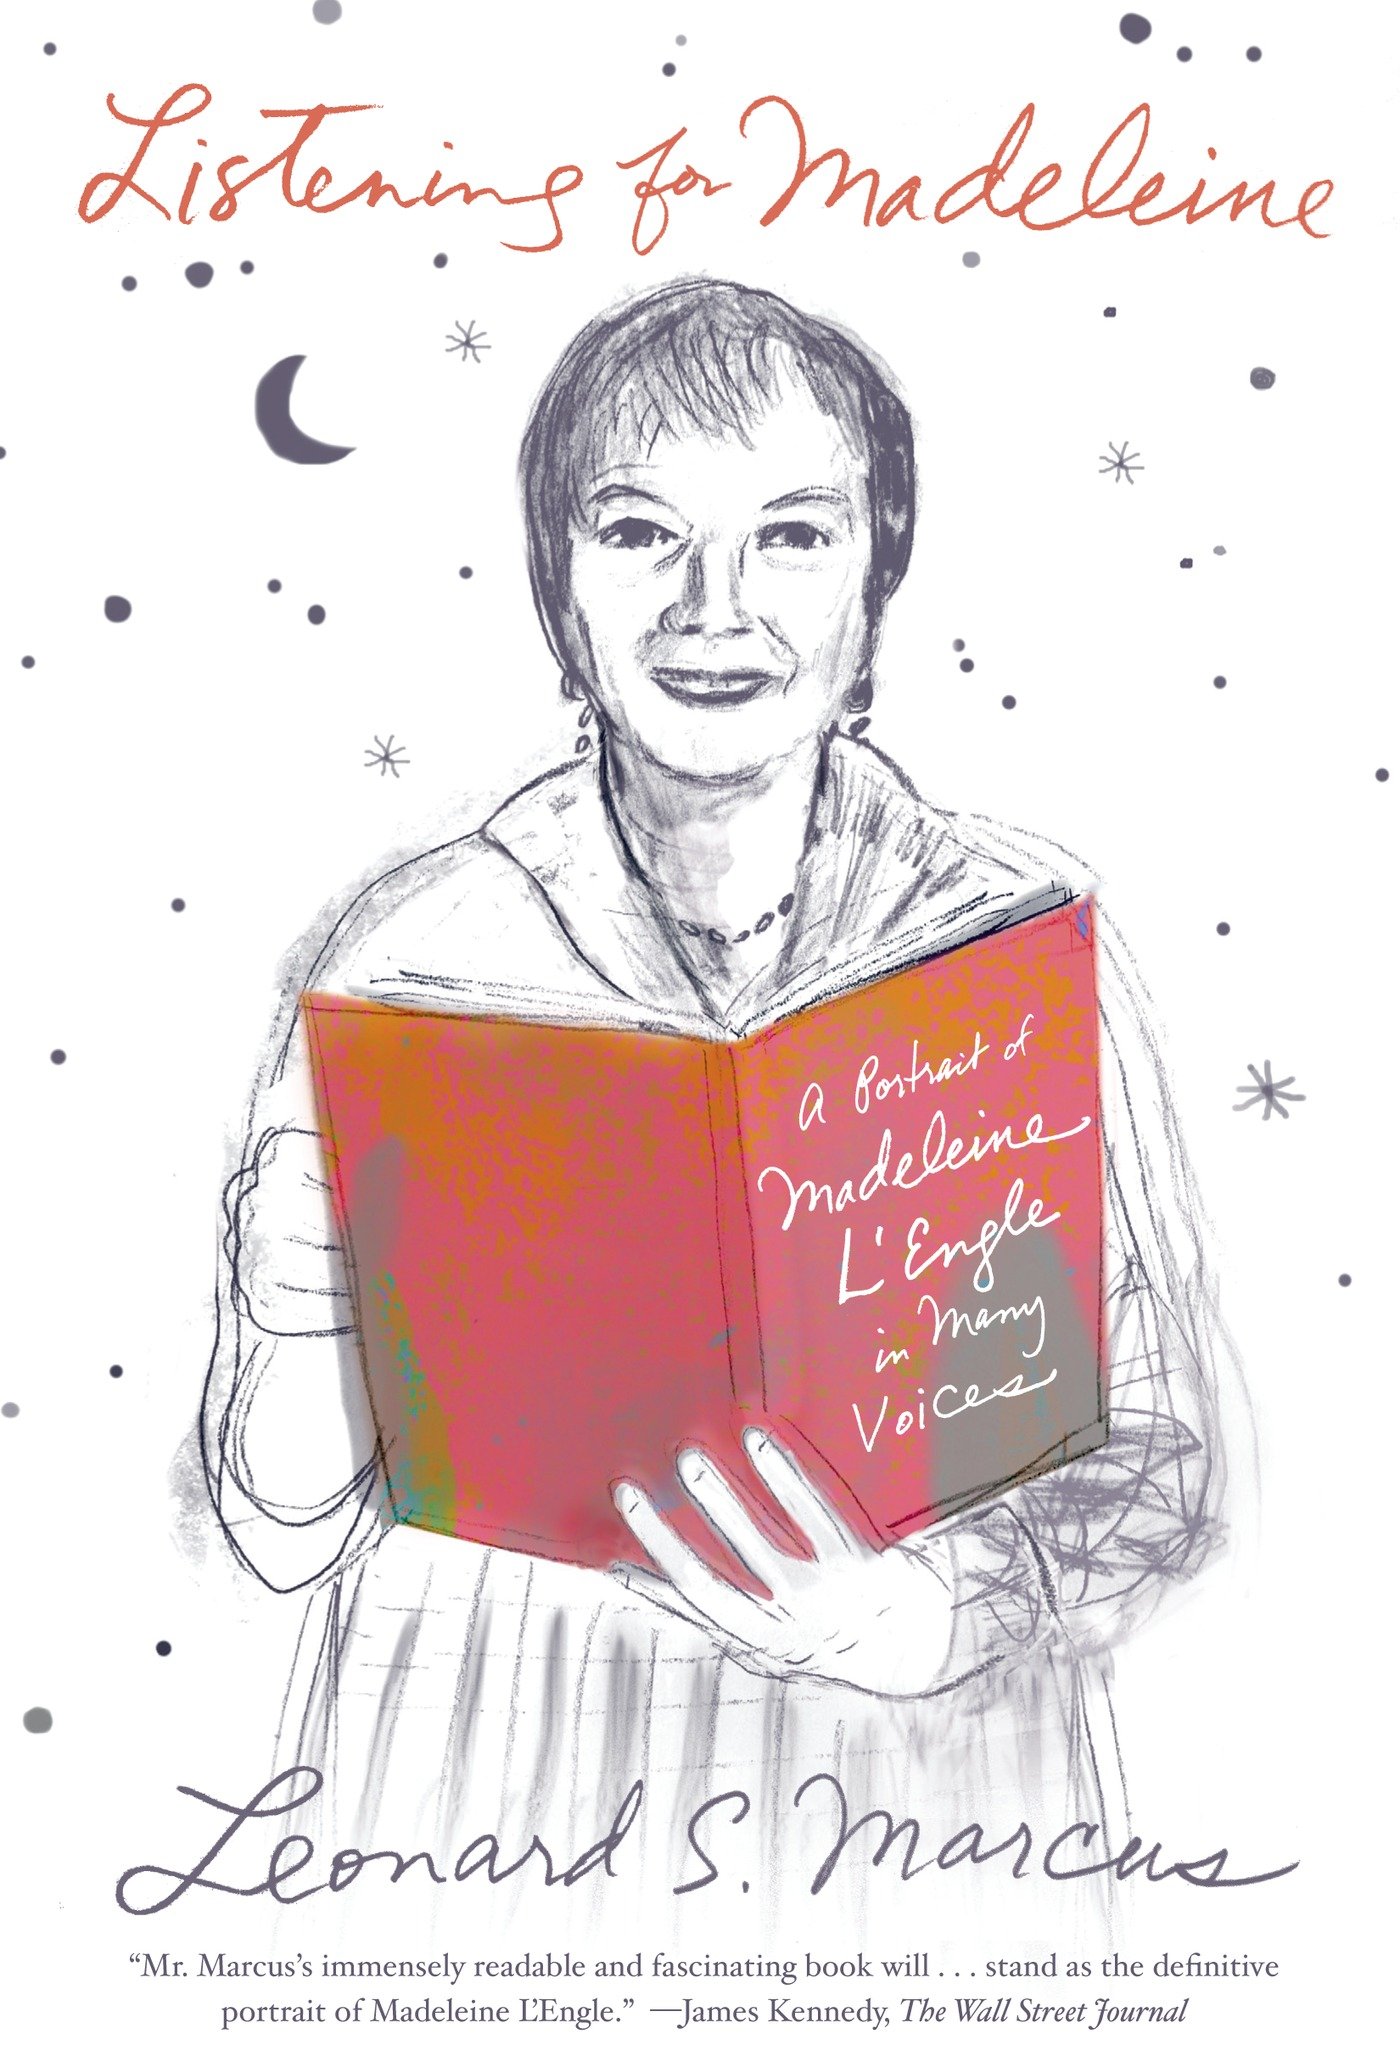 Listening for Madeleine
A Portrait of
Madeleine
L'Engle
in Many
Voices
Leonard S. Marcus
“Mr. Marcus’s immensely readable and fascinating book will . . . stand as the definitive
portrait of Madeleine L’Engle.” —James Kennedy, The Wall Street Journal